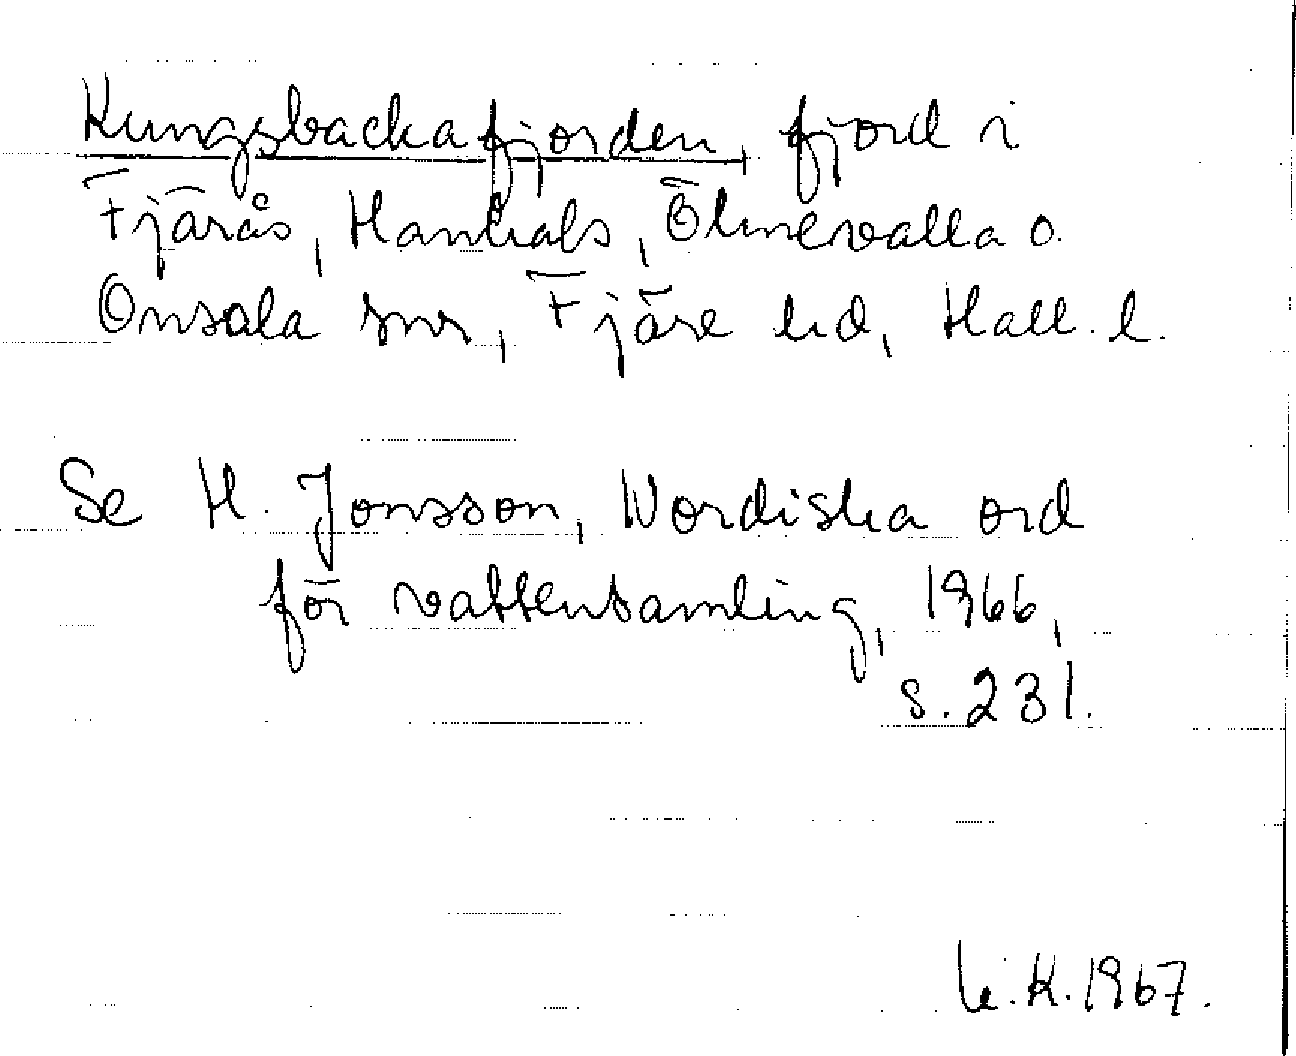 Kungsbackafjorden, fjord i
Fjärås, Hanhals, Ölmevalla o.
Onsala snr, Fjäre hd, Hall. l.
Se H. Jonsson, Nordiska ord
för vattensamling, 1966,
s. 231.
K. 1967.